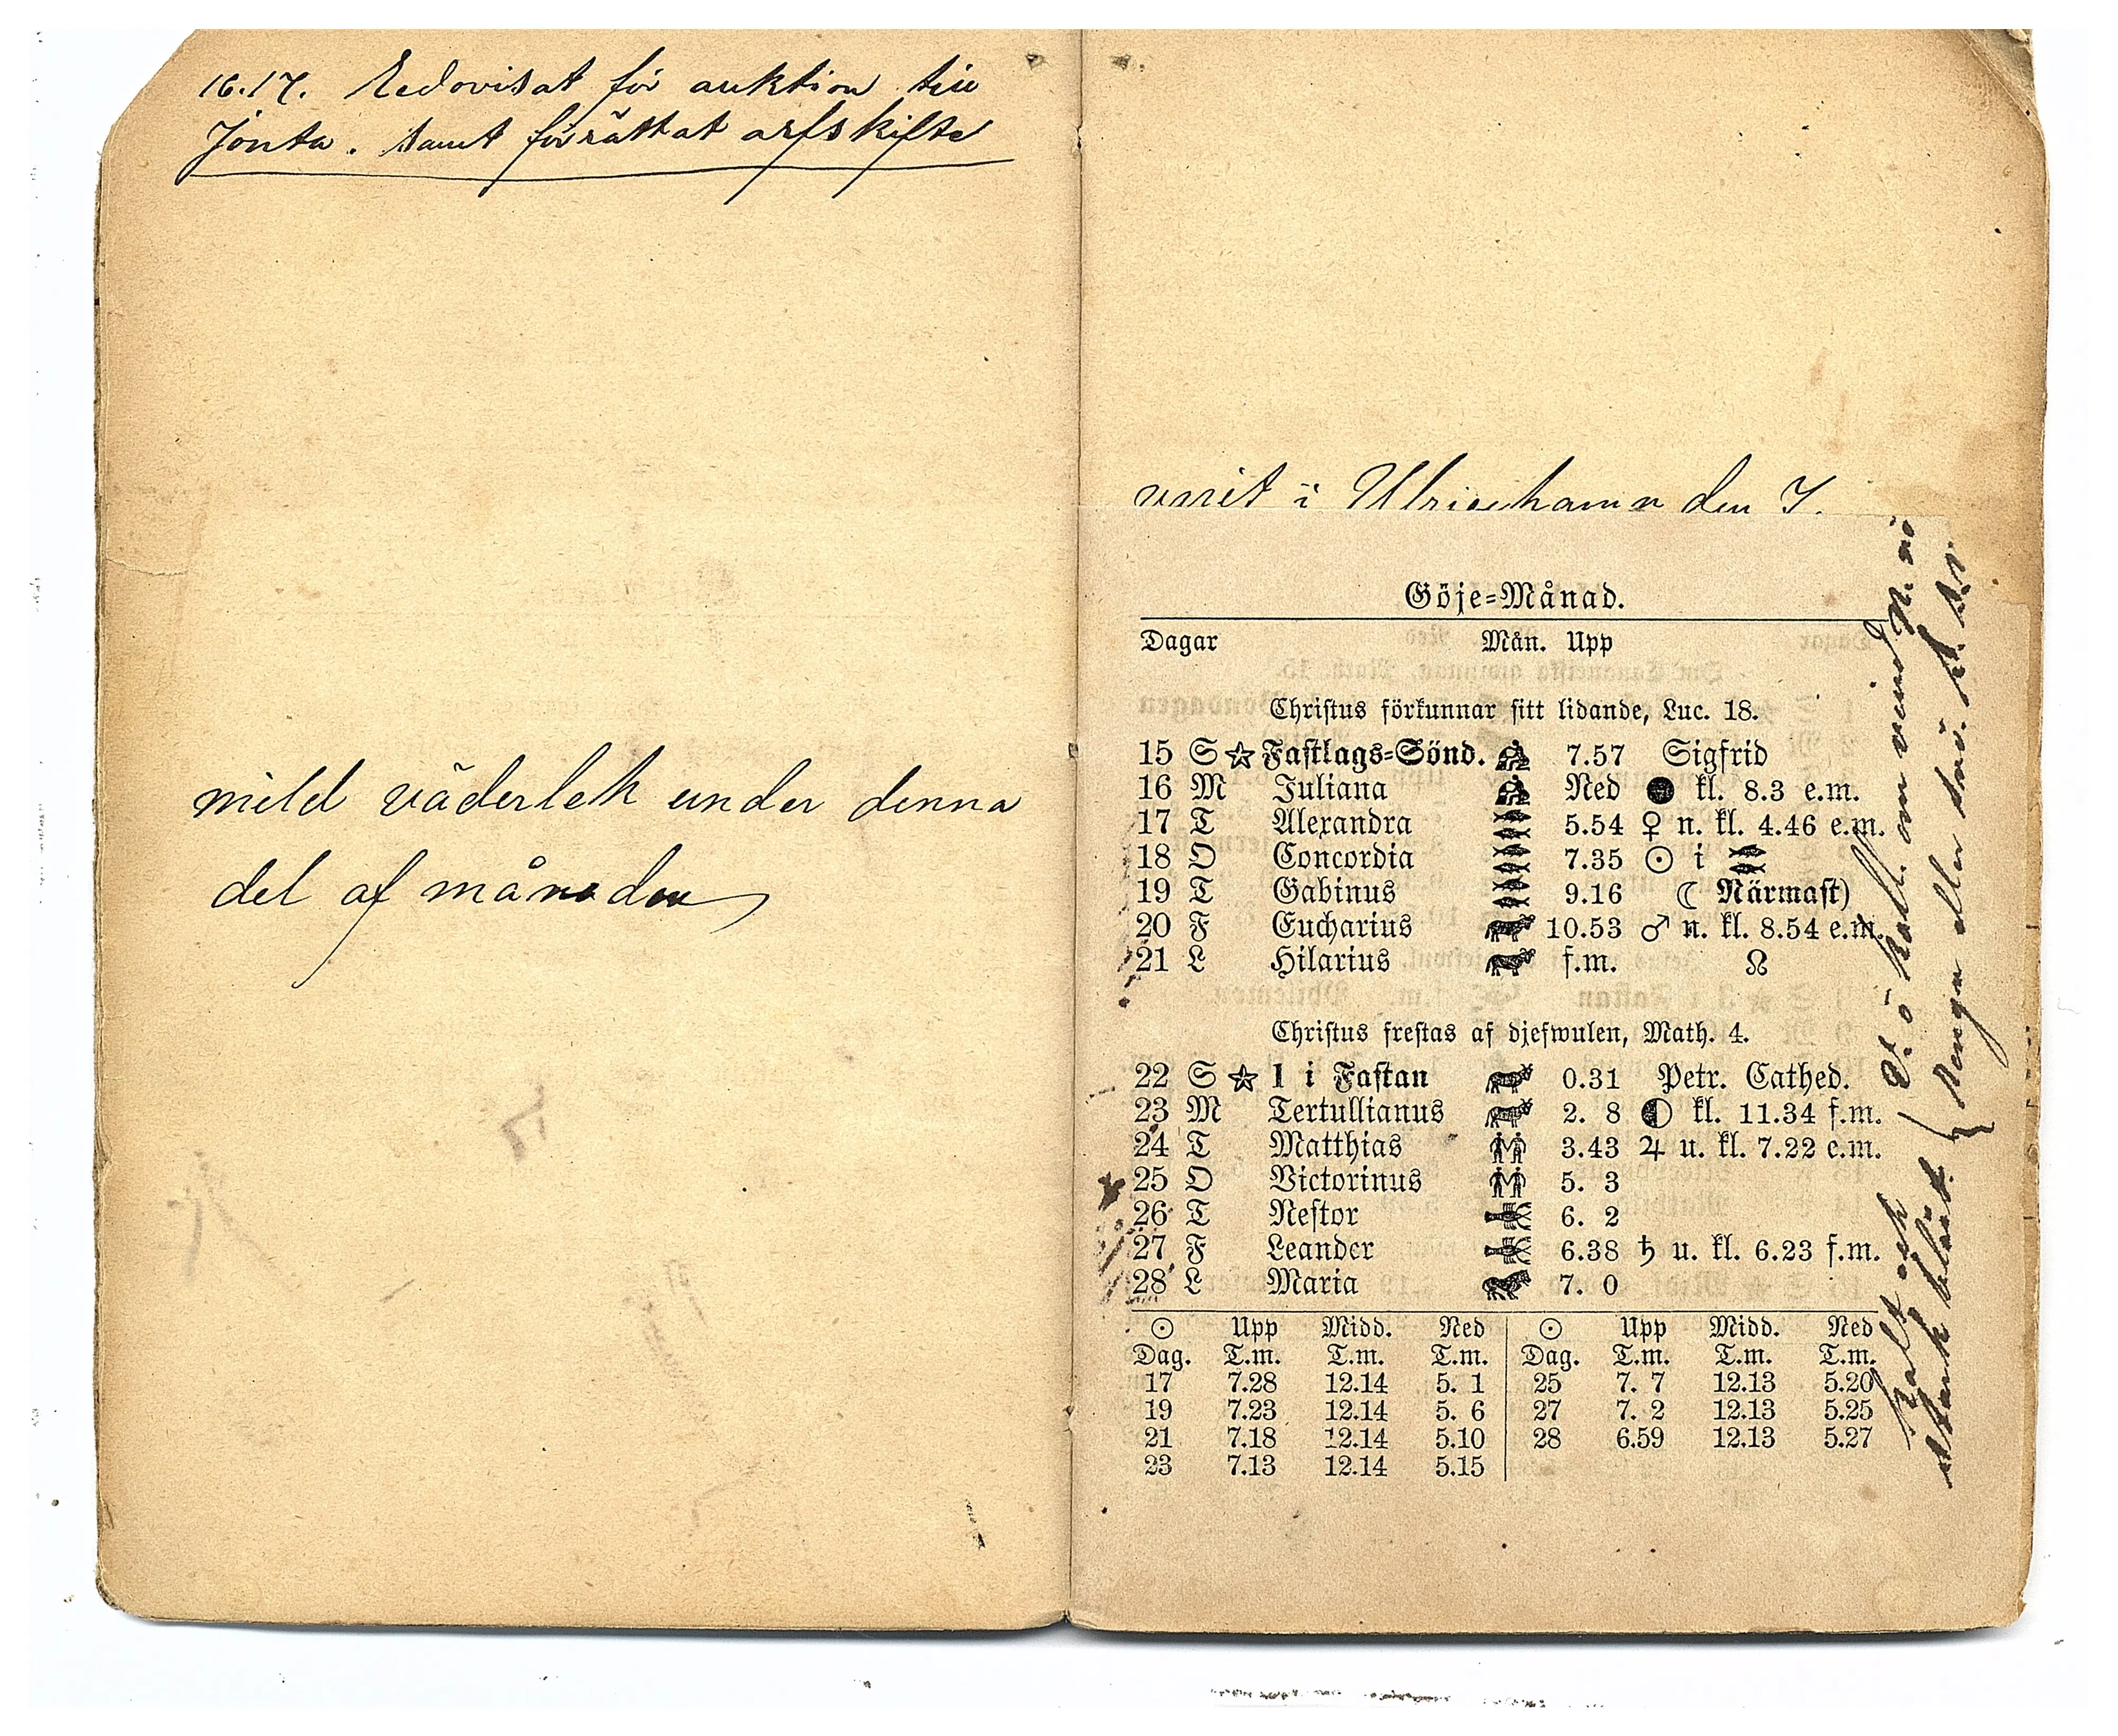 16.17. Redovisat för auktion till
Jonta. samt förrättat arfskifte
mild väderlek under denna
del af månaden
varit i Ulricehamn den 7.
Göje=Månad.
Dagar Mån. Upp
Christus förkunnar sitt lidande, Luc. 18.
15 S ☆ Fastlags=Sönd. 7.57 Sigfrid
16 M Juliana Ned ● kl. 8.3 e.m.
17 T Alexandra 5.54 ♀ n. kl. 4.46 e.m.
18 O Concordia 7.35 ☉ i ♓
19 T Gabinus 9.16 ☾ Närmast)
20 F Eucharius 10.53 ♂ n. kl. 8.54 e.m.
21 L Hilarius f.m. ☊
Christus frestas af djefwulen, Math. 4.
22 S ☆ 1 i Fastan 0.31 Petr. Cathed.
23 M Tertullianus 2. 8 ◐ kl. 11.34 f.m.
24 T Matthias 3.43 ♃ u. kl. 7.22 e.m.
25 O Victorinus 5. 3
26 T Nestor 6. 2
27 F Leander 6.38 ♄ u. kl. 6.23 f.m.
28 L Maria 7. 0
☉ Upp Midd. Ned ☉ Upp Midd. Ned
Dag. T.m. T.m. T.m. Dag. T.m. T.m. T.m.
17 7.28 12.14 5. 1 25 7. 7 12.13 5.20
19 7.23 12.14 5. 6 27 7. 2 12.13 5.25
21 7.18 12.14 5.10 28 6.59 12.13 5.27
23 7.13 12.14 5.15
Kallt och
stark blåst.
V. ö kallt. om vind N. ö
Regn eller snö.